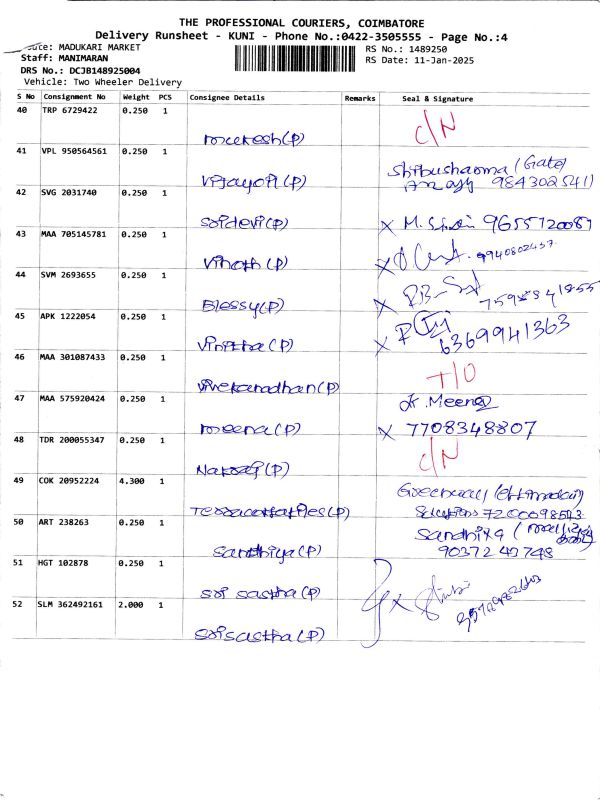 THE PROFESSIONAL COURIERS, COIMBATORE
Delivery Runsheet - KUNI - Phone No.:0422-3505555 - Page No.:4
MADUKARI MARKET
RS No.: 1489250
Staff: MANIMARAN
RS Date: 11-Jan-2025
DRS No.: DCJB148925004
Vehicle: Two Wheeler Delivery
S No Consignment No Weight PCS Consignee Details Remarks Seal & Signature
40 TRP 6729422 0.250 1
C/N
mukesh(P)
41 VPL 950564561 0.250 1
(Gate)
984302541)
42 SVG 2031740 0.250 1
Sridevi(P) X M. 9655720087
43 MAA 705145781 0.250 1
Vinoth(P) X 9940802437
44 SVM 2693655 0.250 1
Blessy(P) X
45 APK 1222054 0.250 1
Vinitha(P) X 6369941363
46 MAA 301087433 0.250 1
T/O
Vivekanadhan(P)
47 MAA 575920424 0.250 1
Meena
meena(P) X 7708348807
48 TDR 200055347 0.250 1
C/N
49 COK 20952224 4.300 1
7200098543
50 ART 238263 0.250 1
Sandhiya
Sandhiya(P)
51 HGT 102878 0.250 1
Sri sastha(P)
52 SLM 362492161 2.000 1
Srisastha(P)